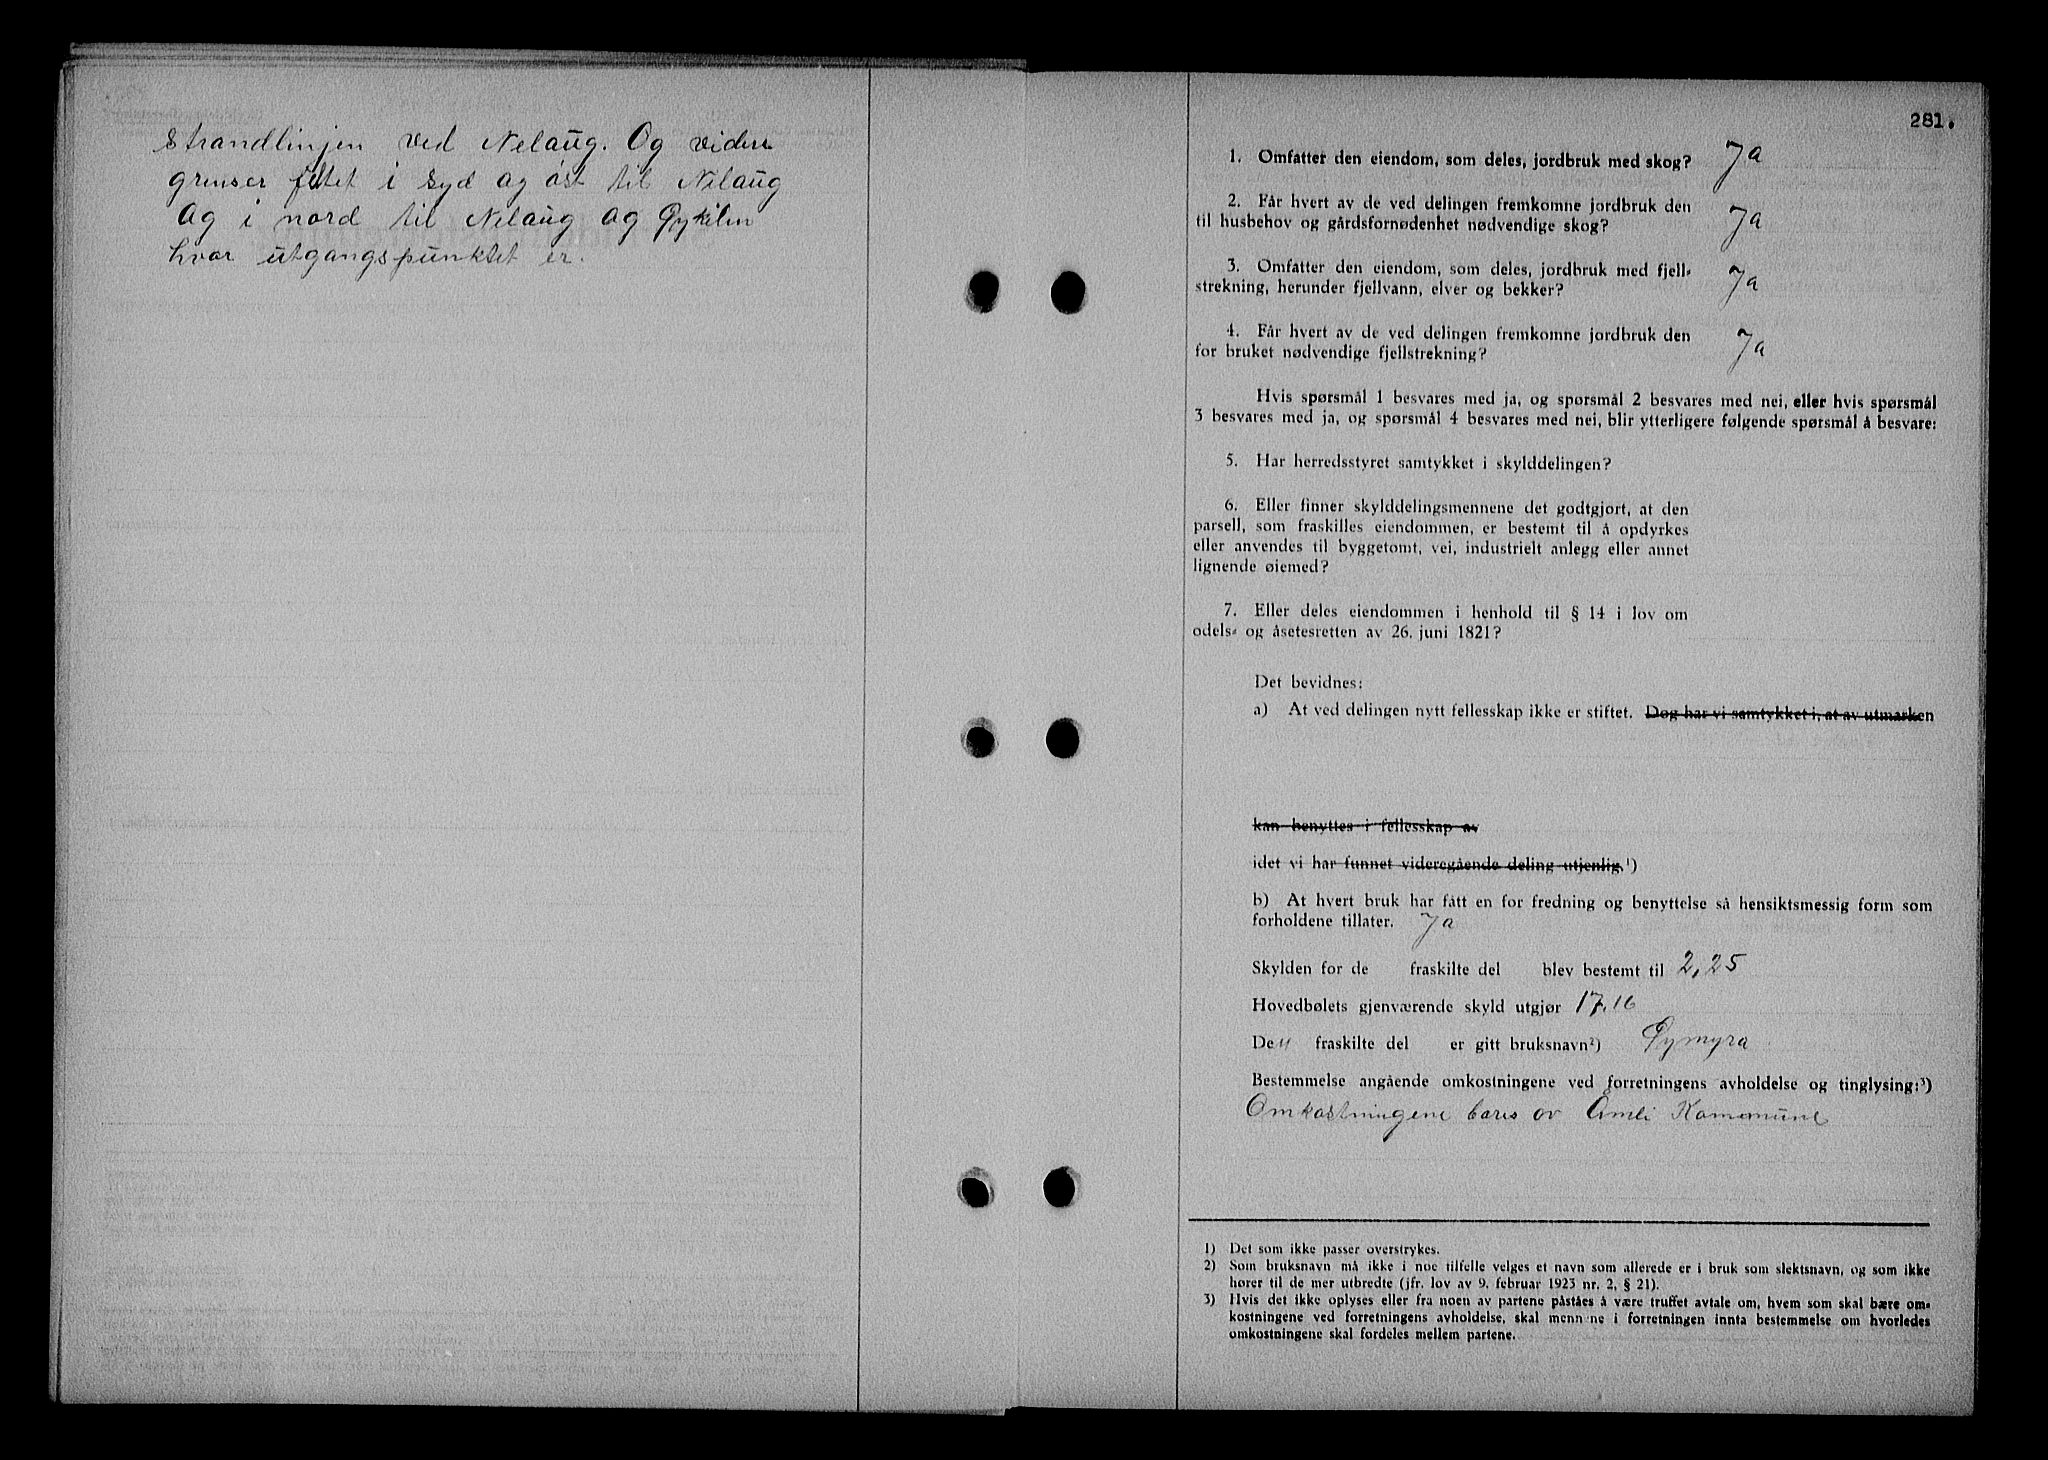 Strandlinjen ved Nelaug. Og videre
grenser feltet i syd og øst til Nelaug
Og i nord til Nelaug og Pykilen
hvor utgangspunktet er.
281.
1. Omfatter den eiendom, som deles, jordbruk med skog? Ja
2. Får hvert av de ved delingen fremkomne jordbruk den
til husbehov og gårdsfornødenhet nødvendige skog? Ja
3. Omfatter den eiendom, som deles, jordbruk med fjell-
strekning, herunder fjellvann, elver og bekker? Ja
4. Får hvert av de ved delingen fremkomne jordbruk den
for bruket nødvendige fjellstrekning? Ja
Hvis spørsmål 1 besvares med ja, og spørsmål 2 besvares med nei, eller hvis spørsmål
3 besvares med ja, og spørsmål 4 besvares med nei, blir ytterligere følgende spørsmål å besvare:
5. Har herredsstyret samtykket i skylddelingen?
6. Eller finner skylddelingsmennene det godtgjort, at den
parsell, som fraskilles eiendommen, er bestemt til å opdyrkes
eller anvendes til byggetomt, vei, industrielt anlegg eller annet
lignende øiemed?
7. Eller deles eiendommen i henhold til § 14 i lov om
odels- og åsetesretten av 26. juni 1821?
Det bevidnes:
a) At ved delingen nytt fellesskap ikke er stiftet. Dog har vi samtykket i, at av utmarken
kan benyttes i fellesskap av
idet vi har funnet videregående deling utjenlig.¹)
b) At hvert bruk har fått en for fredning og benyttelse så hensiktsmessig form som
forholdene tillater. Ja
Skylden for de fraskilte del blev bestemt til 2,25
Hovedbølets gjenværende skyld utgjør 17,16
Den fraskilte del er gitt bruksnavn²) Pymyra
Bestemmelse angående omkostningene ved forretningens avholdelse og tinglysing:³)
Omkostningene bæres av Åmli Kommune
1) Det som ikke passer overstrykes.
2) Som bruksnavn må ikke i noe tilfelle velges et navn som allerede er i bruk som slektsnavn, og som ikke
hører til de mer utbredte (jfr. lov av 9. februar 1923 nr. 2, § 21).
3) Hvis det ikke oplyses eller fra noen av partene påståes å være truffet avtale om, hvem som skal bære om-
kostningene ved forretningens avholdelse, skal mennene i forretningen innta bestemmelse om hvorledes
omkostningene skal fordeles mellem partene.